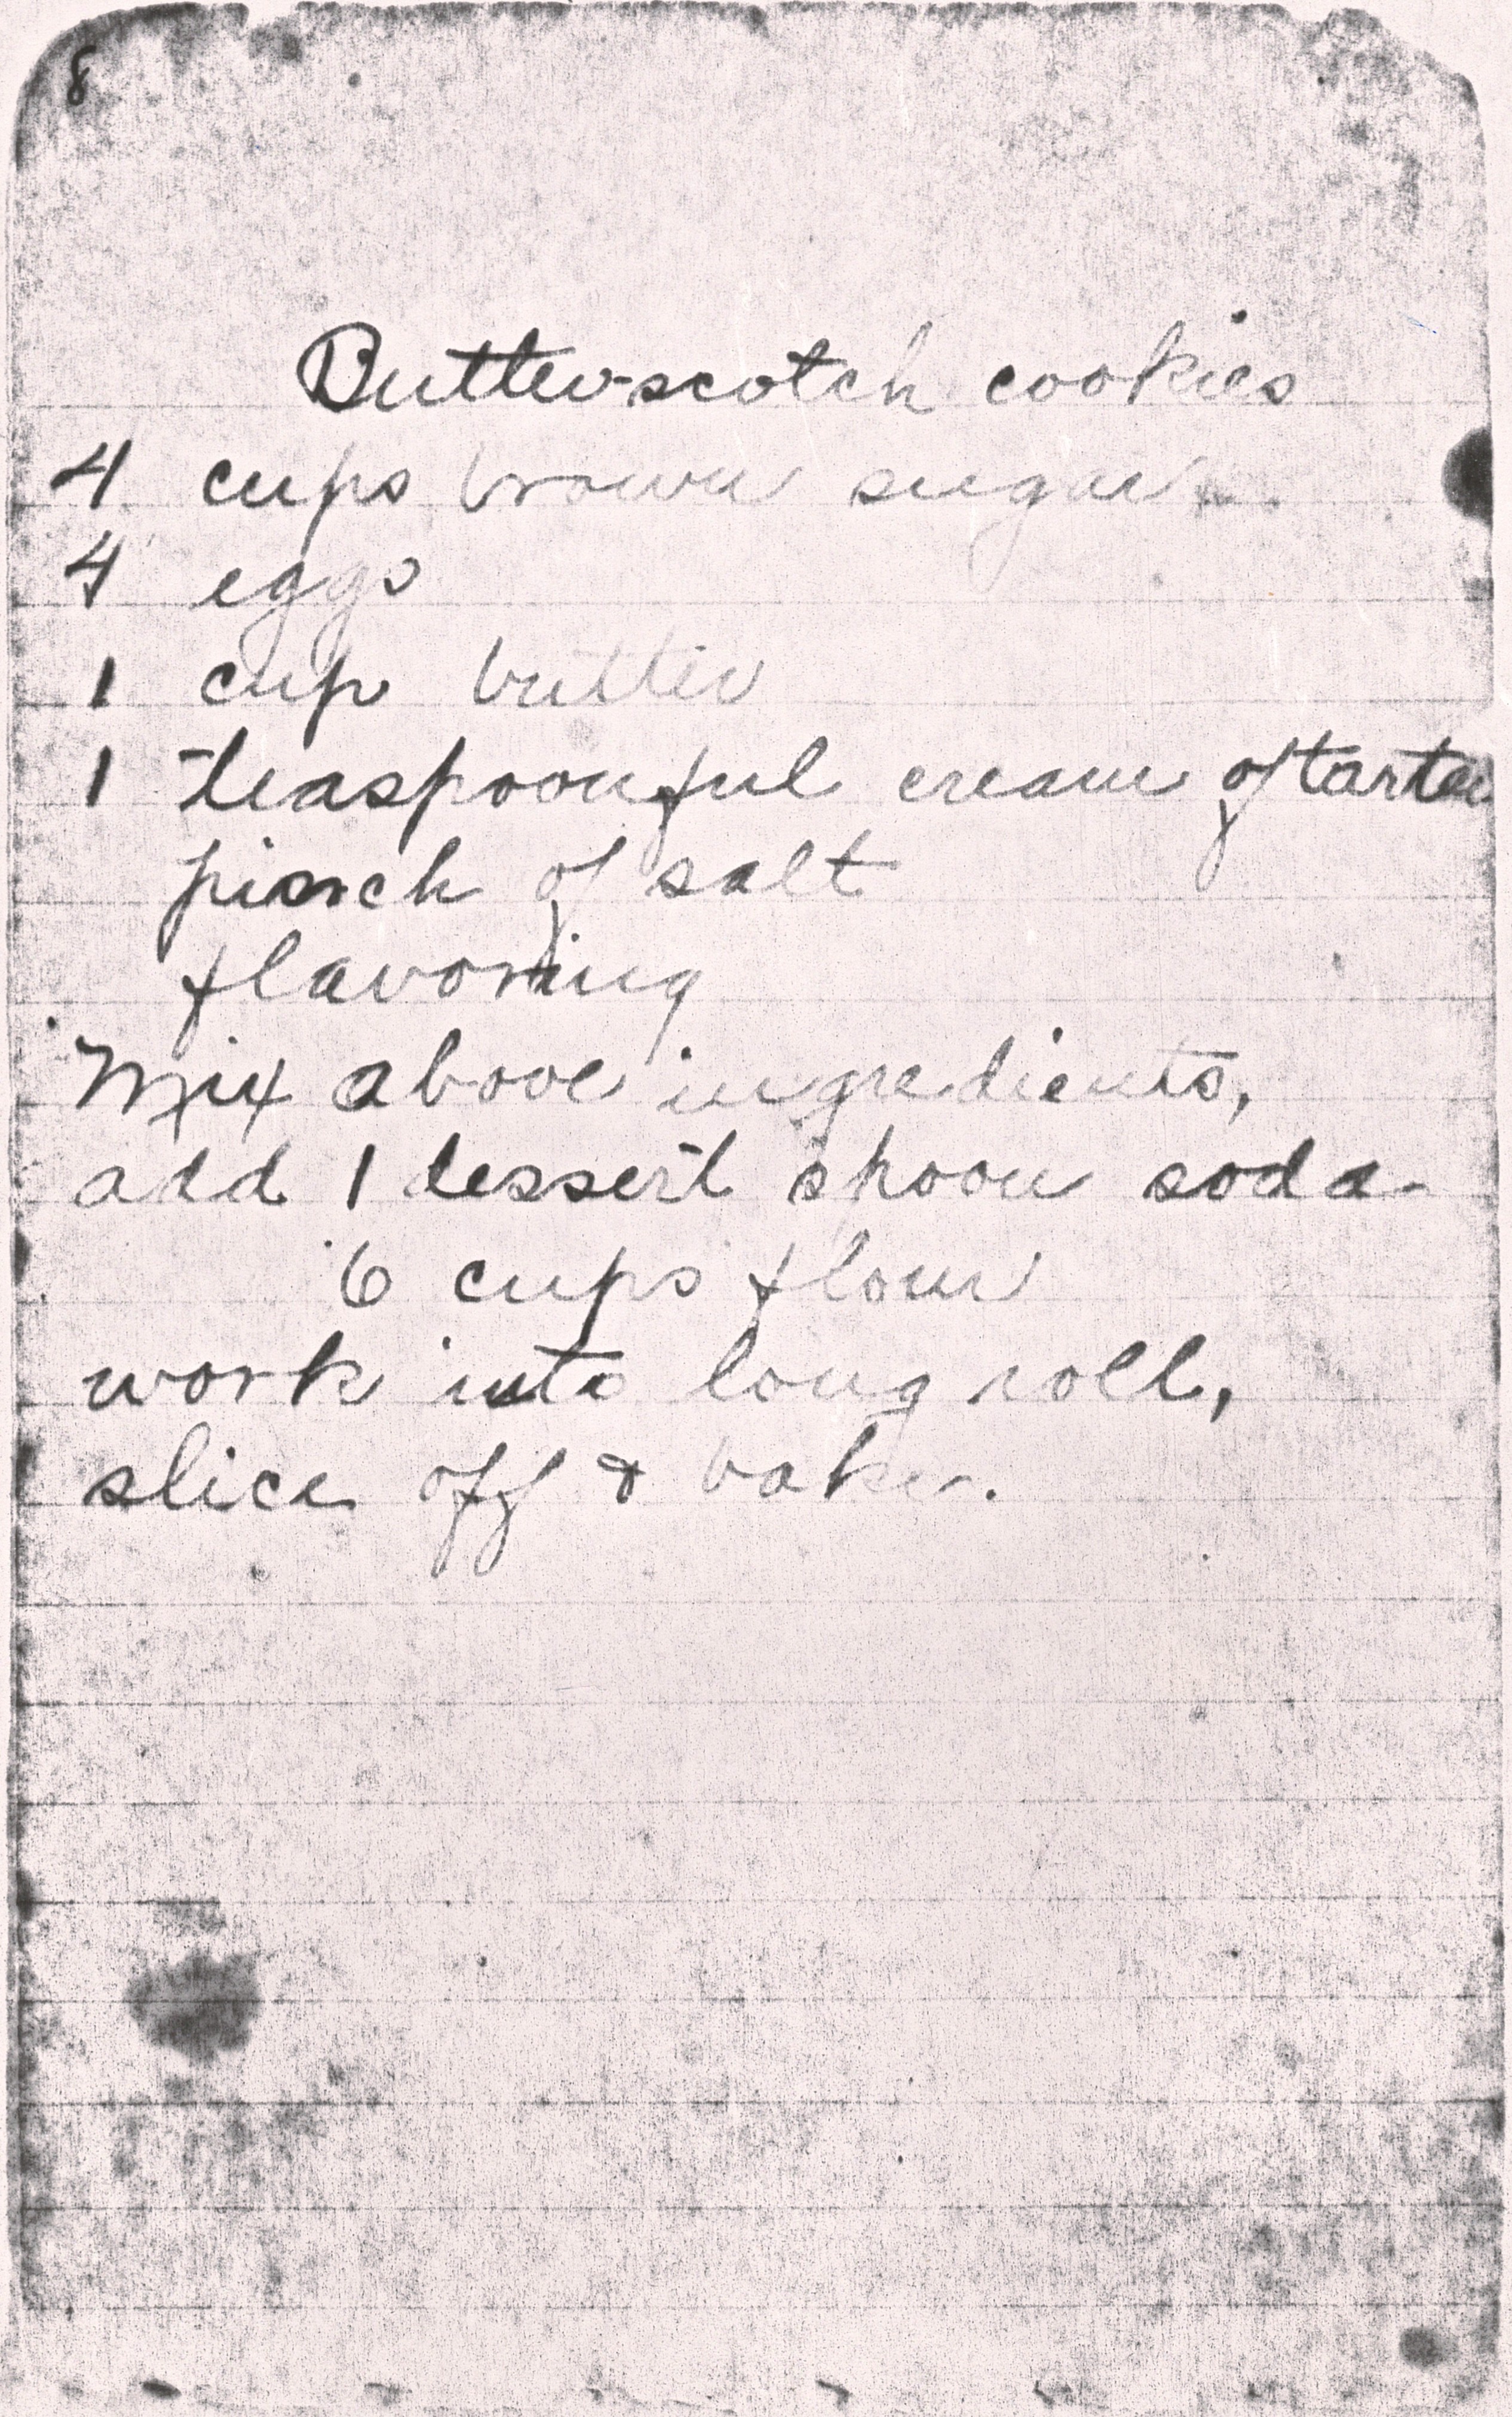 8
Butter-scotch cookies
4 cups brown sugar
4 eggs
1 cup butter
1 teaspoonful cream of tartar
pinch of salt
flavoring
Mix above ingredients,
add 1 dessert spoon soda-
6 cups flour
work into long roll,
slice off & bake.